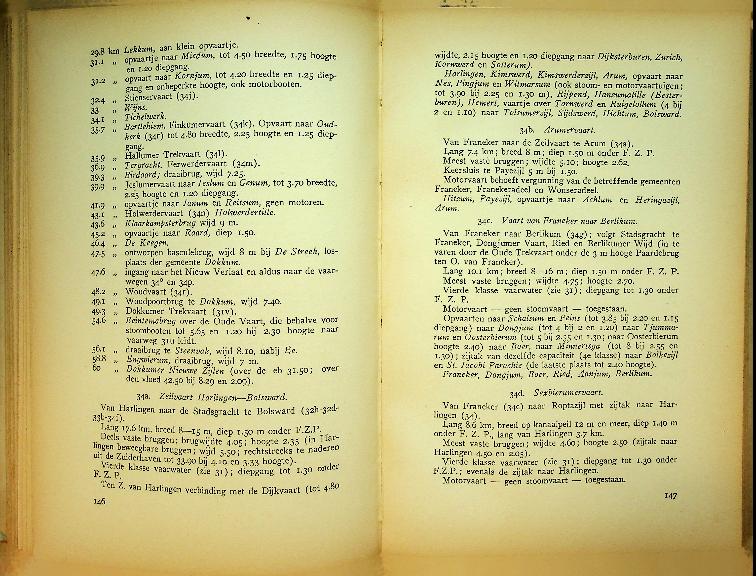 29.8 km Lekkum, aan klein opvaartje.
31.1 „ opvaartje naar Miedum, tot 4.50 breedte, 1.75 hoogte
en 1.20 diepgang.
31.2 „ opvaart naar Kornjum, tot 4.20 breedte en 1.25 diep-
gang en onbeperkte hoogte, ook motorbooten.
32.4 „ Stienservaart (34i).
33 „ Wijns.
34.1 „ Tichelwerk.
35.7 „ Bartlehiem, Finkumervaart (34k). Opvaart naar Oud-
kerk (34r) tot 4.80 breedte, 2.25 hoogte en 1.25 diep-
gang.
35.9 „ Hallumer Trekvaart (34l).
36.9 „ Tergracht, Ferwerdervaart (34m).
39.3 „ Birdaard; draaibrug, wijd 7.25.
39.9 „ Jeslumervaart naar Jeslum en Genum, tot 3.70 breedte,
2.25 hoogte en 1.20 diepgang.
41.9 „ opvaartje naar Janum en Reitsum, geen motoren.
43.1 „ Holwerdervaart (34n) Holwerdertille.
43.6 „ Klaarkampsterbrug wijd 9 m.
45.2 „ opvaartje naar Raard, diep 1.50.
46.4 „ De Keegen.
47.5 „ ontworpen basculebrug, wijd 8 m bij De Streek, los-
plaats der gemeente Dokkum.
47.6 „ ingang naar het Nieuw Verlaat en aldus naar de vaar-
wegen 34o en 34p.
48.2 „ Woudvaart (34r).
49.1 „ Woudpoortbrug te Dokkum, wijd 7.40.
49.3 „ Dokkumer Trekvaart (31v).
54.6 „ Reintemabrug over de Oude Vaart, die behalve voor
stoombooten tot 5.65 en 1.20 bij 2.30 hoogte naar
vaarweg 31u leidt.
56.1 „ draaibrug te Steenvak, wijd 8.10, nabij Ee.
58.8 „ Engwierum, draaibrug, wijd 7 m.
60 „ Dokkumer Nieuwe Zijlen (over de eb 31.50; over
den vloed 42.50 bij 8.29 en 2.09).
34a. Zeilvaart Harlingen—Bolsward.
Van Harlingen naar de Stadsgracht te Bolsward (32h-32d-
33k-34f).
Lang 17.6 km, breed 8—15 m, diep 1.50 m onder F.Z.P.
Deels vaste bruggen; brugwijdte 4.05; hoogte 2.35 (in Har-
lingen beweegbare bruggen; wijd 5.50; rechtstreeks te naderen
uit de Zuiderhaven tot 33.90 bij 4.10 en 3.33 hoogte).
Vierde klasse vaarwater (zie 31); diepgang tot 1.30 onder
F. Z. P.
Ten Z. van Harlingen verbinding met de Dijkvaart (tot 4.80
146
wijdte, 2.15 hoogte en 1.20 diepgang naar Dijksterburen, Zurich,
Kornwerd en Sotterum).
Harlingen, Kimswerd, Kimswerderzijl, Arum, opvaart naar
Nes, Pingjum en Witmarsum (ook stoom- en motorvaartuigen;
tot 3.90 bij 2.25 en 1.30 m), Rijpend, Hansumatille (Eester-
buren), Hemert, vaartje over Tornwerd en Ruigelollum (4 bij
2 en 1.10) naar Tolsumerzijl, Sijdswerd, Hichtum, Bolsward.
34b. Arumervaart.
Van Franeker naar de Zeilvaart te Arum (34a).
Lang 7.4 km; breed 8 m; diep 1.50 m onder F. Z. P.
Meest vaste bruggen; wijdte 5.10; hoogte 2.62.
Keersluis te Payezijl 5 m bij 1.50.
Motorvaart behoeft vergunning van de betreffende gemeenten
Franeker, Franekeradeel en Wonseradeel.
Hitsum, Payezijl, opvaartje naar Achlum en Heringazijl,
Arum.
34c. Vaart van Franeker naar Berlikum.
Van Franeker naar Berlikum (34g); volgt Stadsgracht te
Franeker, Dongjumer Vaart, Ried en Berlikumer Wijd (in te
varen door de Oude Trekvaart onder de 3 m hooge Paardebrug
ten O. van Franeker).
Lang 10.1 km; breed 8—16 m; diep 1.50 m onder F. Z. P.
Meest vaste bruggen; wijdte 4.75; hoogte 2.70.
Vierde klasse vaarwater (zie 31); diepgang tot 1.30 onder
F. Z. P.
Motorvaart — geen stoomvaart — toegestaan.
Opvaarten naar Schalsum en Peins (tot 3.85 bij 2.20 en 1.15
diepgang) naar Dongjum (tot 4 bij 2 en 1.20) naar Tjummarum
en Oosterbierum (tot 5 bij 2.55 en 1.30; naar Oosterbierum
hoogte 2.40) naar Boer, naar Minnertsga (tot 8 bij 2.55 en
1.30); zijtak van dezelfde capaciteit (4e klasse) naar Balkezijl
en St. Jacobi Parochie (de laatste plaats tot 2.40 hoogte).
Franeker, Dongjum, Boer, Ried, Aanjum, Berlikum.
34d. Sexbierumervaart.
Van Franeker (34c) naar Roptazijl met zijtak naar Har-
lingen (34).
Lang 8.6 km, breed op kanaalpeil 12 m en meer, diep 1.40 m
onder F. Z. P., lang van Harlingen 3.7 km.
Meest vaste bruggen; wijdte 4.60; hoogte 2.50 (zijtak naar
Harlingen 4.50 en 2.05).
Vierde klasse vaarwater (zie 31); diepgang tot 1.30 onder
F.Z.P.; evenals de zijtak naar Harlingen.
Motorvaart — geen stoomvaart — toegestaan.
147